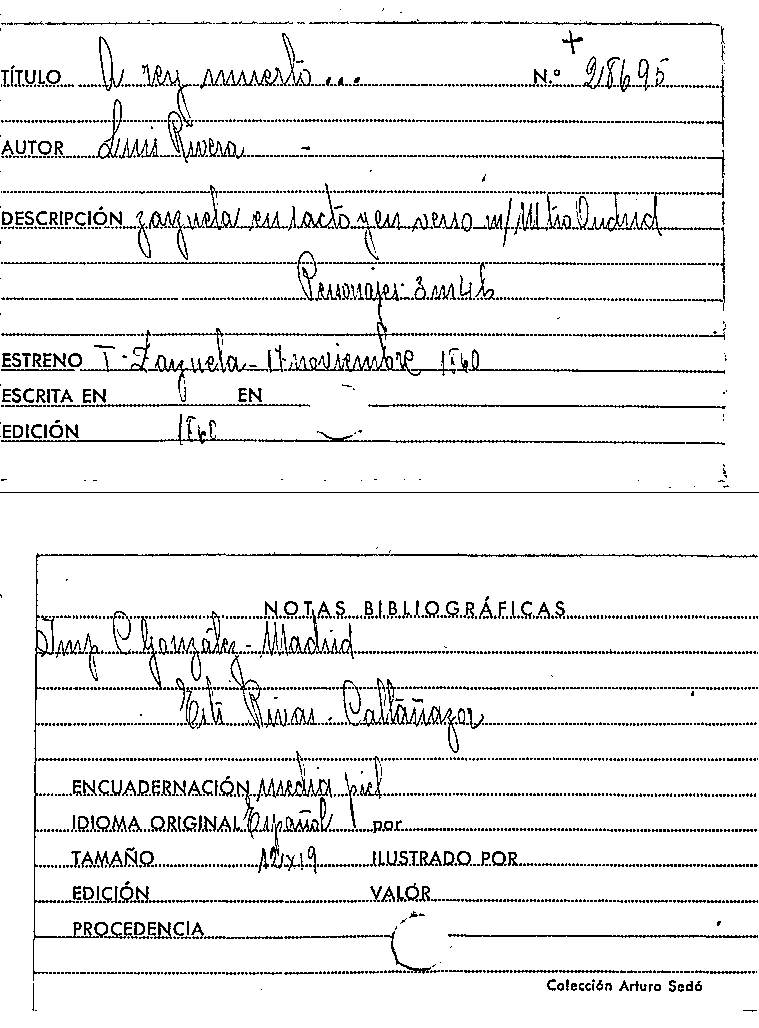 +
TÍTULO A rey muerto... N.º 28695
AUTOR Luis Rivera -
DESCRIPCIÓN zarzuela en 1 acto y en verso m/ Mtro Oudrid
Personajes 3 m 4 h
ESTRENO T. Zarzuela - 17 noviembre 1860
ESCRITA EN EN
EDICIÓN 1860
NOTAS BIBLIOGRÁFICAS
Imp C González - Madrid
Rivas - Caltañazor
ENCUADERNACIÓN media piel
IDIOMA ORIGINAL Español por
TAMAÑO 12x19 ILUSTRADO POR
EDICIÓN VALOR
PROCEDENCIA
Colección Arturo Sedó